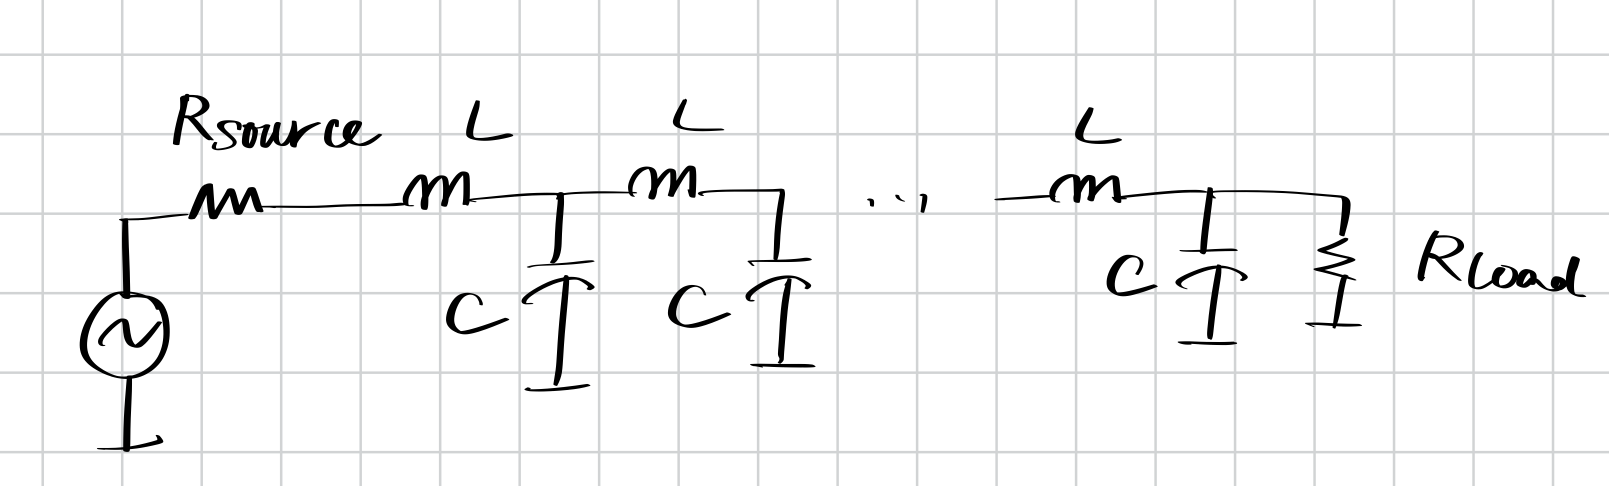 Rsource L L L
...
C C C Rload